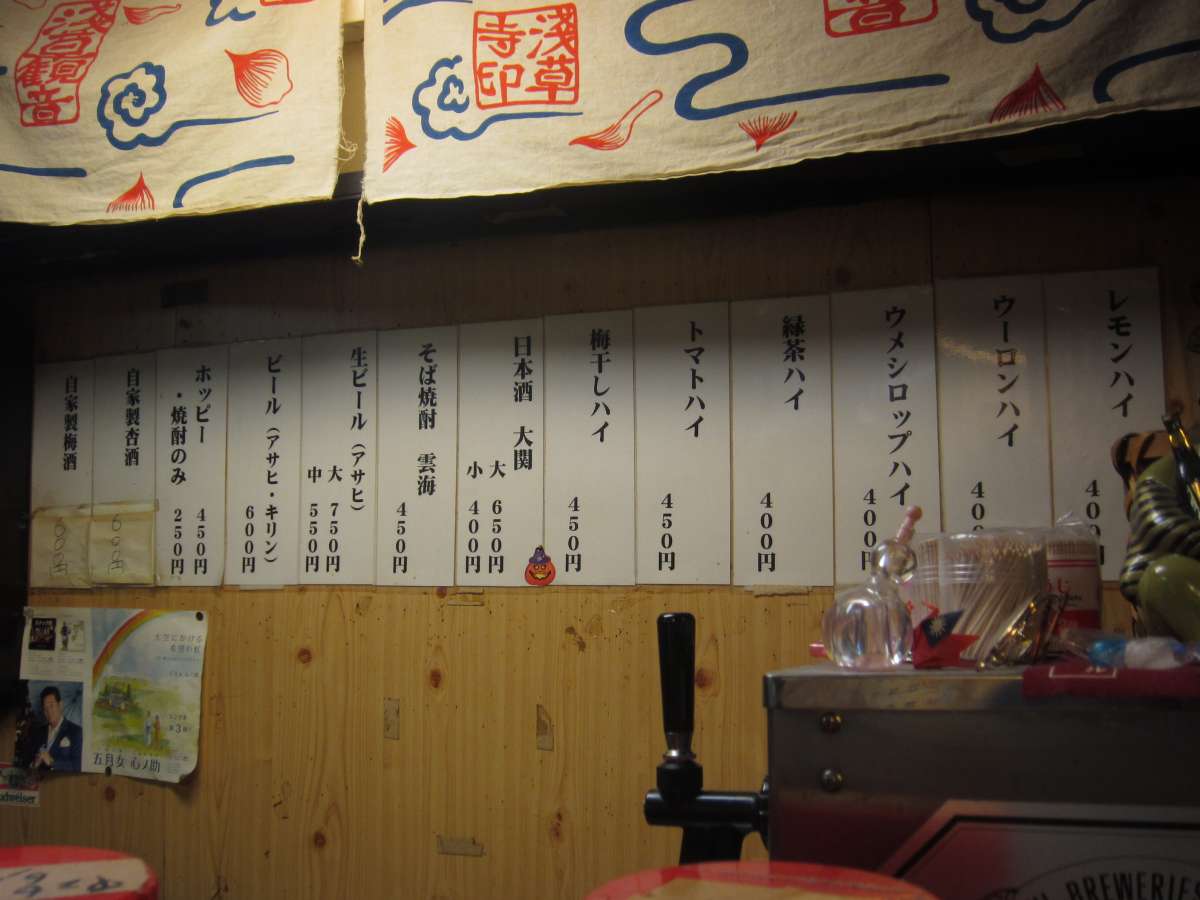 浅草観音
浅草
寺印
レモンハイ
400円
ウーロンハイ
400
ウメシロップハイ
400円
緑茶ハイ
400円
トマトハイ
450円
梅干しハイ
450円
日本酒 大関
大 650円
小 400円
そば焼酎 雲海
450円
生ビール(アサヒ)
大 750円
中 550円
ビール(アサヒ・キリン)
600円
ホッピー 450円
・焼酎のみ 250円
自家製杏酒
600円
自家製梅酒
600円
大空にかける
希望の虹
第3弾!
五月女 心ノ助
BREWERIES